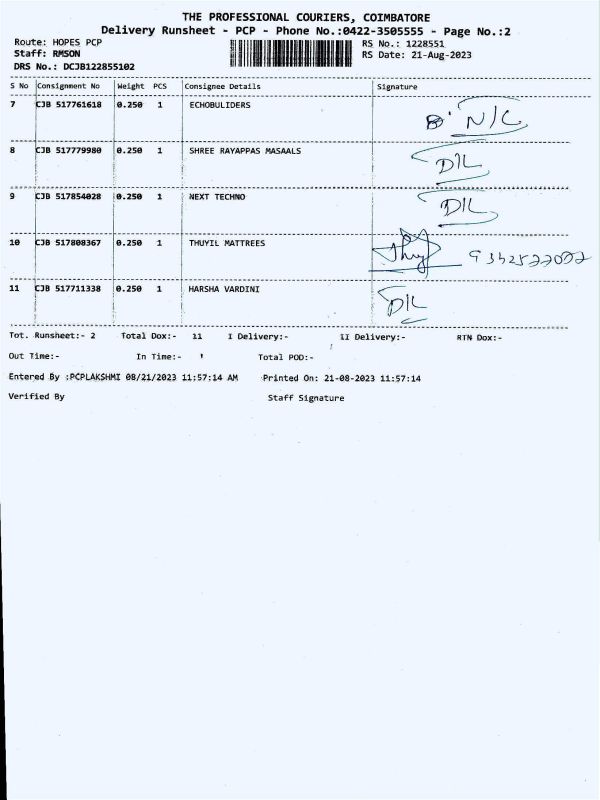 THE PROFESSIONAL COURIERS, COIMBATORE
Delivery Runsheet - PCP - Phone No.:0422-3505555 - Page No.:2
Route: HOPES PCP RS No.: 1228551
Staff: RMSON RS Date: 21-Aug-2023
DRS No.: DCJB122855102
S No Consignment No Weight PCS Consignee Details Signature
7 CJB 517761618 0.250 1 ECHOBULIDERS N/C
8 CJB 517779980 0.250 1 SHREE RAYAPPAS MASAALS D/L
9 CJB 517854028 0.250 1 NEXT TECHNO D/L
10 CJB 517808367 0.250 1 THUYIL MATTREES
11 CJB 517711338 0.250 1 HARSHA VARDINI D/L
Tot. Runsheet:- 2 Total Dox:- 11 I Delivery:- II Delivery:- RTN Dox:-
Out Time:- In Time:- Total POD:-
Entered By :PCPLAKSHMI 08/21/2023 11:57:14 AM Printed On: 21-08-2023 11:57:14
Verified By Staff Signature